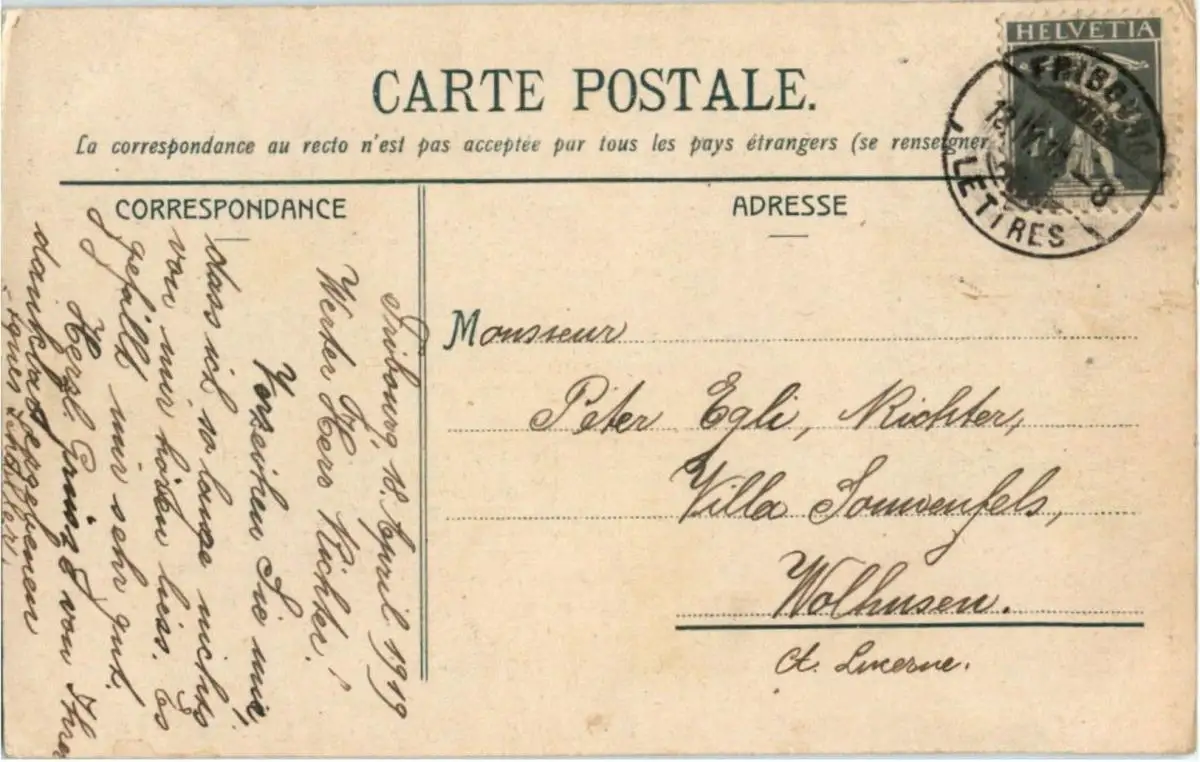 CARTE POSTALE.
La correspondance au recto n'est pas acceptée par tous les pays étrangers (se renseigner
HELVETIA
FRIBOURG
LETTRES
CORRESPONDANCE
Fribourg, 18. April 1919
Werter Herr Richter!
Verzeihen Sie mir,
dass ich so lange nichts
von mir hören liess. Es
gefällt mir sehr gut.
Herzl. Grüsse von Ihrer
dankbar ergebenen
Agnes
ADRESSE
Monsieur
Peter Egli, Richter,
Villa Sonnenfels,
Wolhusen.
Ct. Lucerne.